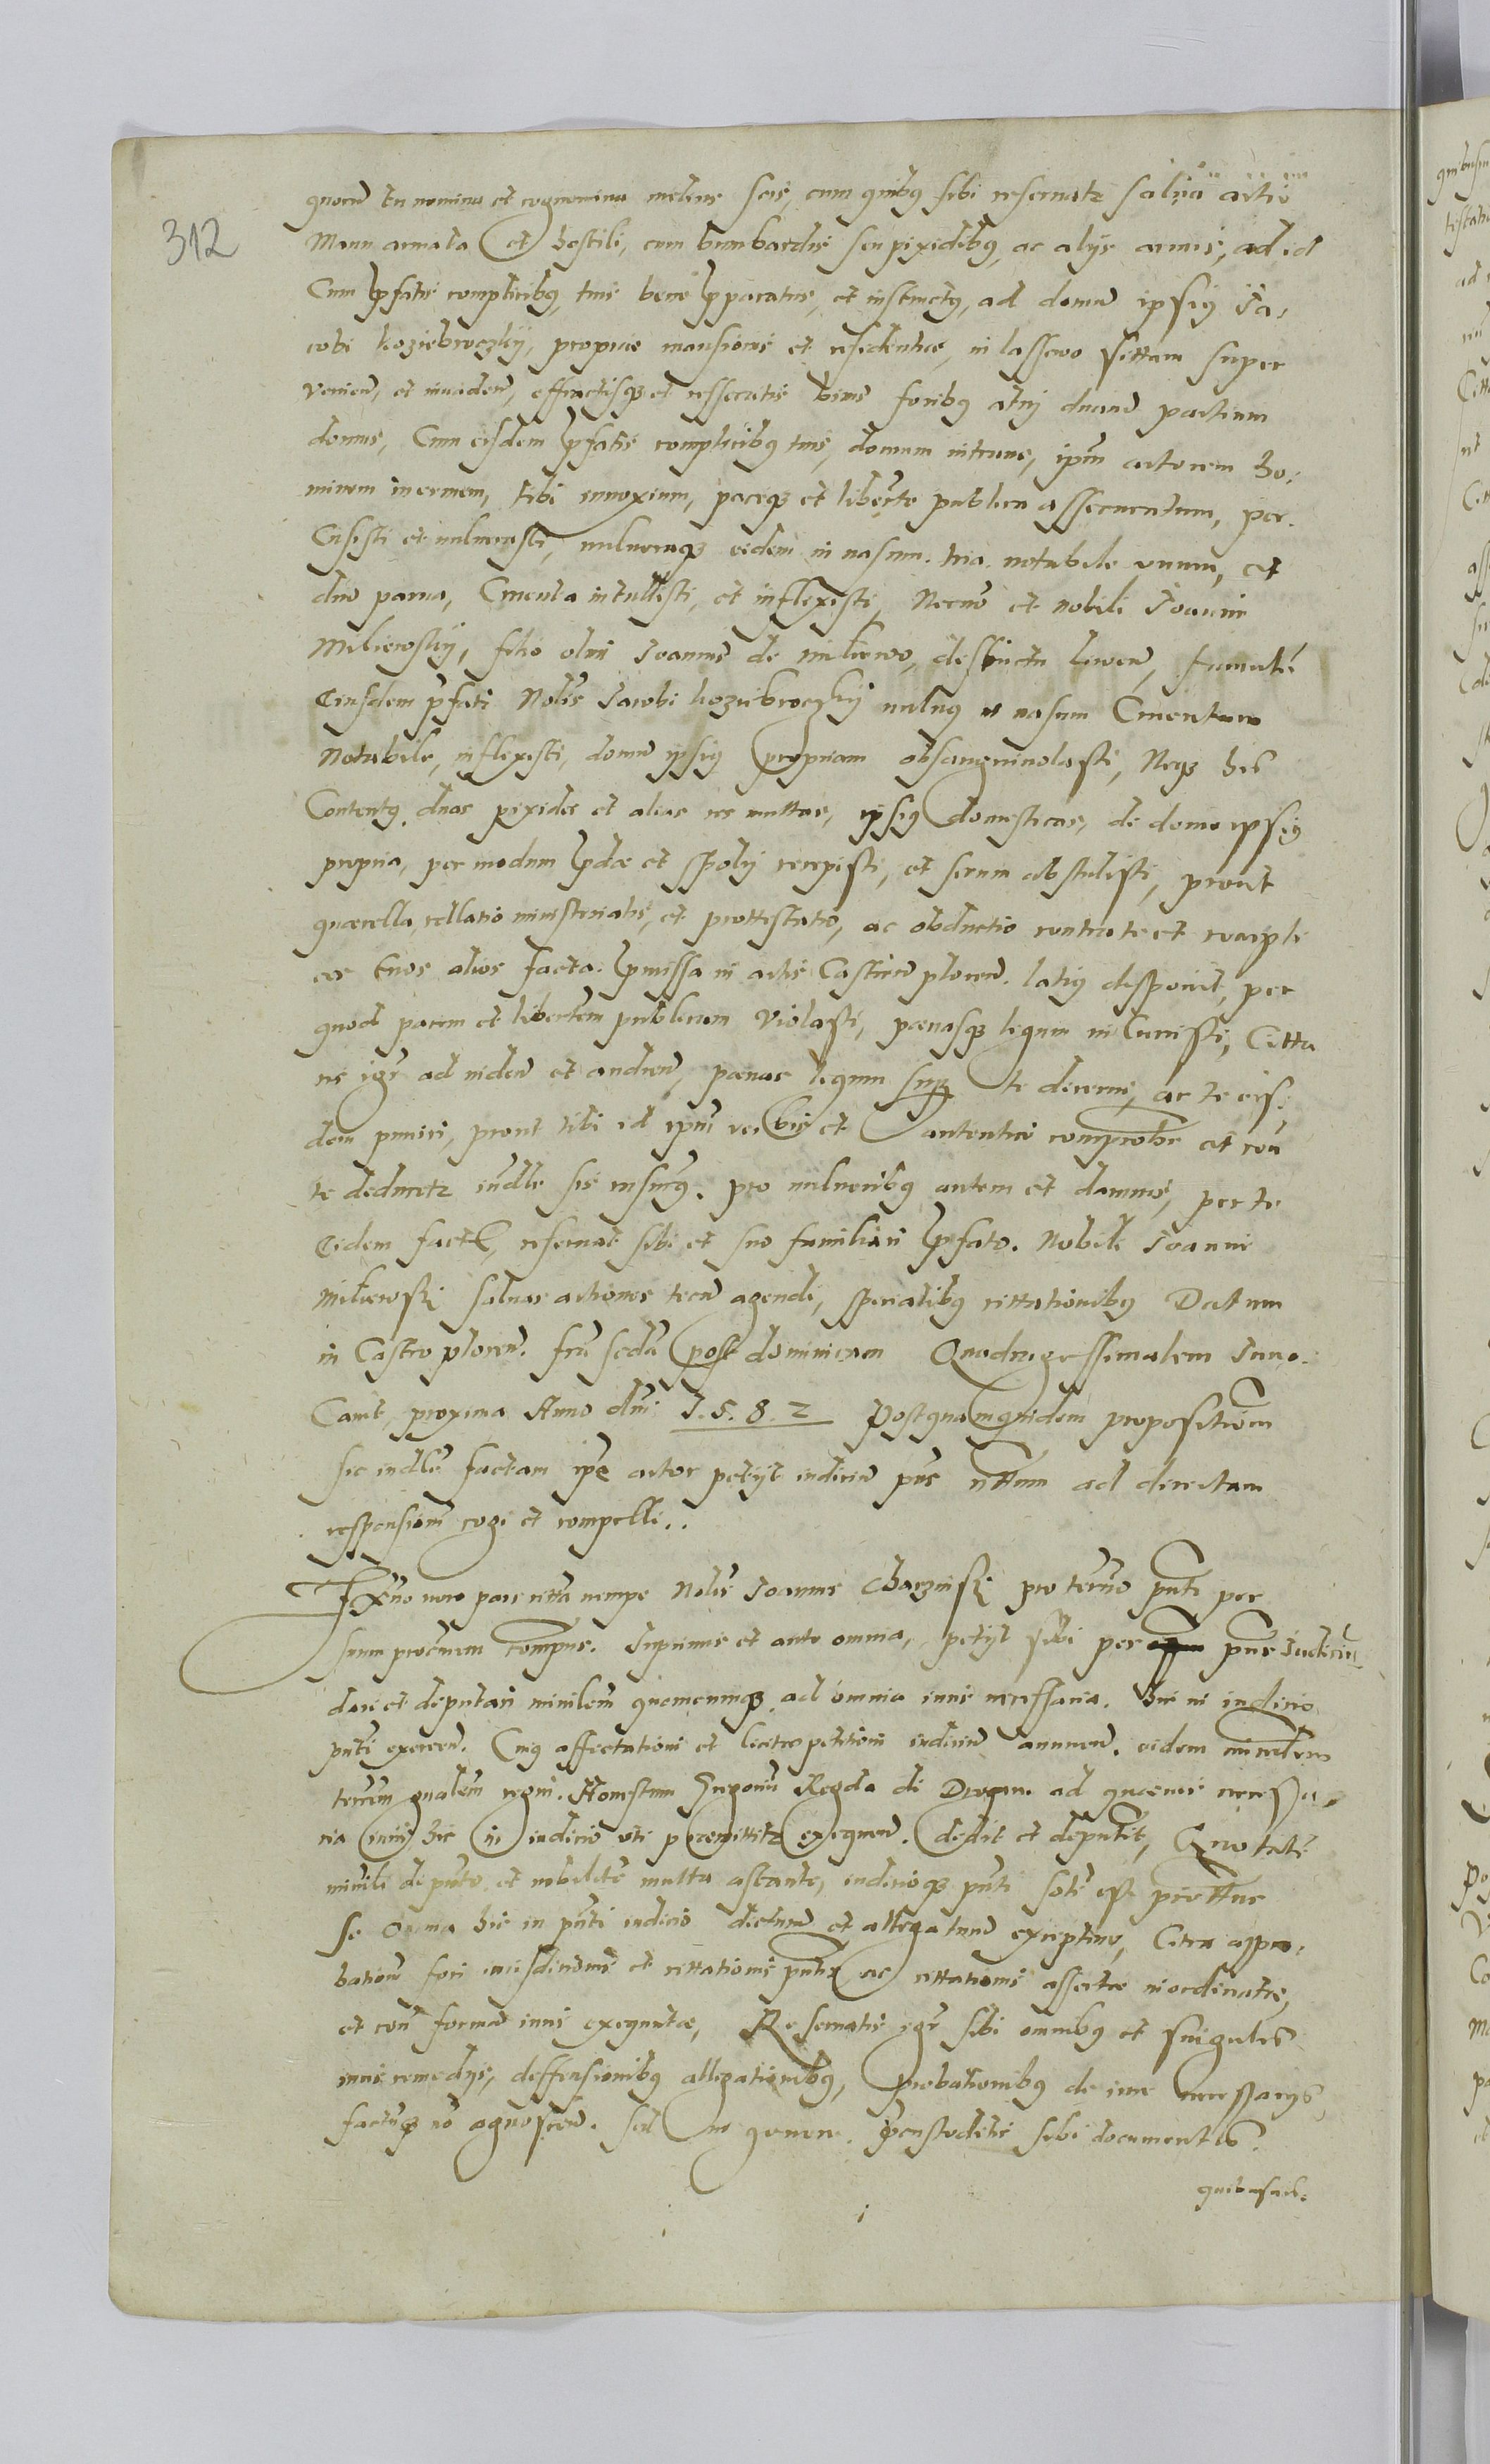 312
quorū tu nomina et cognomina melius scis, cum quibꝯ sibi reservatr salva actio
Manu armata et hostili, cum bumbardis seu pixidibꝯ, ac alijs armis, ad id
Cum p̱fatis complicibꝯ, tuis bene p̱paratus, et instructꝯ, ad domū ipsiꝯ Ja,
cobi koziebroczkÿ, propriae mansionis et residentiae, in lassewo sittam super
venien̄, et invaden̄, effractisqꝫ et resseratis binis foribꝯ atrij duarū partium
domus, Cum eisdem p̱fatis complicibꝯ tuis, domum intrans, ipm̄ actorem ho,
minem inermem, tibi innoxium, paceqꝫ et libert̄e publica assecuratum, per,
Cusisti et vulnerasti, vulneraqꝫ eidem in nasum tria notabile unum, et
duo parva, Cruenta intullisti, et inflexisti, Necnō et nobili Joanni
Miliewskÿ, filio olim Joannis de milewo, liven̄, famulo
Eiusdem p̄fati Nobīs Jacobi koziebroczkÿ vulnꝯ in nasum Cruentum
Notabile, inflexisti, domū ipsiꝯ propriam obsanguinolasti, Neqꝫ his
Contentꝯ duas pixides et alias res multas, ipsiꝯ domesticas, de domo ipsiꝯ
propria, per modum p̱dae et spolij recepisti, et secum abstulisti, prout
quaerella, rellatio ministerialis, et prottestatio, ac obductio contra te et compli
ces tuos alios facta p̱missa in actis Castren̄ plocen̄. latiꝯ disponit, per
quod pacem et libert̄em publicam violasti, poenasqꝫ legum in Curristi, Citta
ris igr̄ ad viden̄ et audien̄, poenas legum supꝫ te decerni, ac te eis,
dem puniri, prout tibi id ipm̄ verbis et autentice comprobr̄ et con̄
te deducetr iudīle sis responsurꝯ. pro vulneribꝯ autem et damnis, per te
Eidem factis, reservat sibi et suo familiari p̱fato. Nobili Joanni
Milewski salvas actiones tecū agendi, specialibꝯ cittationibꝯ Datum
in Castro plocen̄. fer̄a secd̄a post dominicam Quadragessimalem Invo,
Cavit, proxima Anno dnī 1.5.8.2 Postquamquidem propositionem
sic iudīlr factam ipse actor petijt iudicium pn̄s cittum ad directam
responsionem cogi et compelli..
Ex advo vero pars citta nempe Nobīs Joannes Charzinski pro termō pn̄ti per
suum procrem comp̄ns. Inprimis et ante omnia, petijt sibi per pn̄s Judiciū
dari et deputari minīlem quemcunqꝫ ad omnia iuris necessaria. hic in iudicio
pn̄ti exercen̄. Cuiꝯ affectationi et licitae petitioni iudiciū annuen̄. eidem minīlem
terrem gnālem regni. Honestum Regda de ad quaevis necessa,
ria iuris hic in iudicio uti p̱remittitr exequen̄. dedit et deputavit, Quo tali
minīli deputo et nobilitē multa astante, iudicioqꝫ pn̄ti
se omnia hic in pn̄ti iudicio dictur̄ et allegatur̄ exceptive, Citra appro,
bationem fori iurisdictionis et cittationis pn̄tis ac cittationis assertae inordinatae,
et con̄ formā iuris exequutae, Reservatis igr̄ sibi omnibꝯ et singulis
iuris remedijs, deffensionibꝯ allegationibꝯ, probationibꝯ de iure necessarijs,
factūqꝫ nō agnoscen̄. sed in genere. sibi documentis
quibusvis.